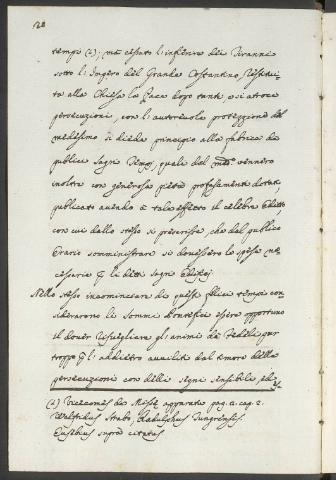 128
tempi (1); mà cessato l'infierire dei Tiranni
sotto l'Impero del Grande Costantino, restitui-
ta alla Chiesa la Pace dopo tante, e si atroci
persecuzioni, con l'autorevole protezzione del
medesimo si diede principio alla fabrica de
publici Sagri Tempj, quali dal med.mo vennero
inoltre con generosa pietà profusamente dotati,
publicato avendo à tale effetto il celebre Editto,
con cui dallo stesso si prescrisse, che dal publico
Erario somministrare si dovessero le spese ne-
cessarie p li detti sagri Edifizj.
Nello stesso incominciare di questi felici tempi con-
siderarono li Sommi Pontefici esser opportuno
il dover risvegliare gli animi de Fedeli pur
troppo p l'addietro avviliti dal timore delle
persecuzioni con delli segni sensibili, ed
(1) Vicecomes de Missæ apparatu pag. 2. cap. 2.
Walfridus Strabo, Radulphus Tungrensis.
Eusebius supra citatus